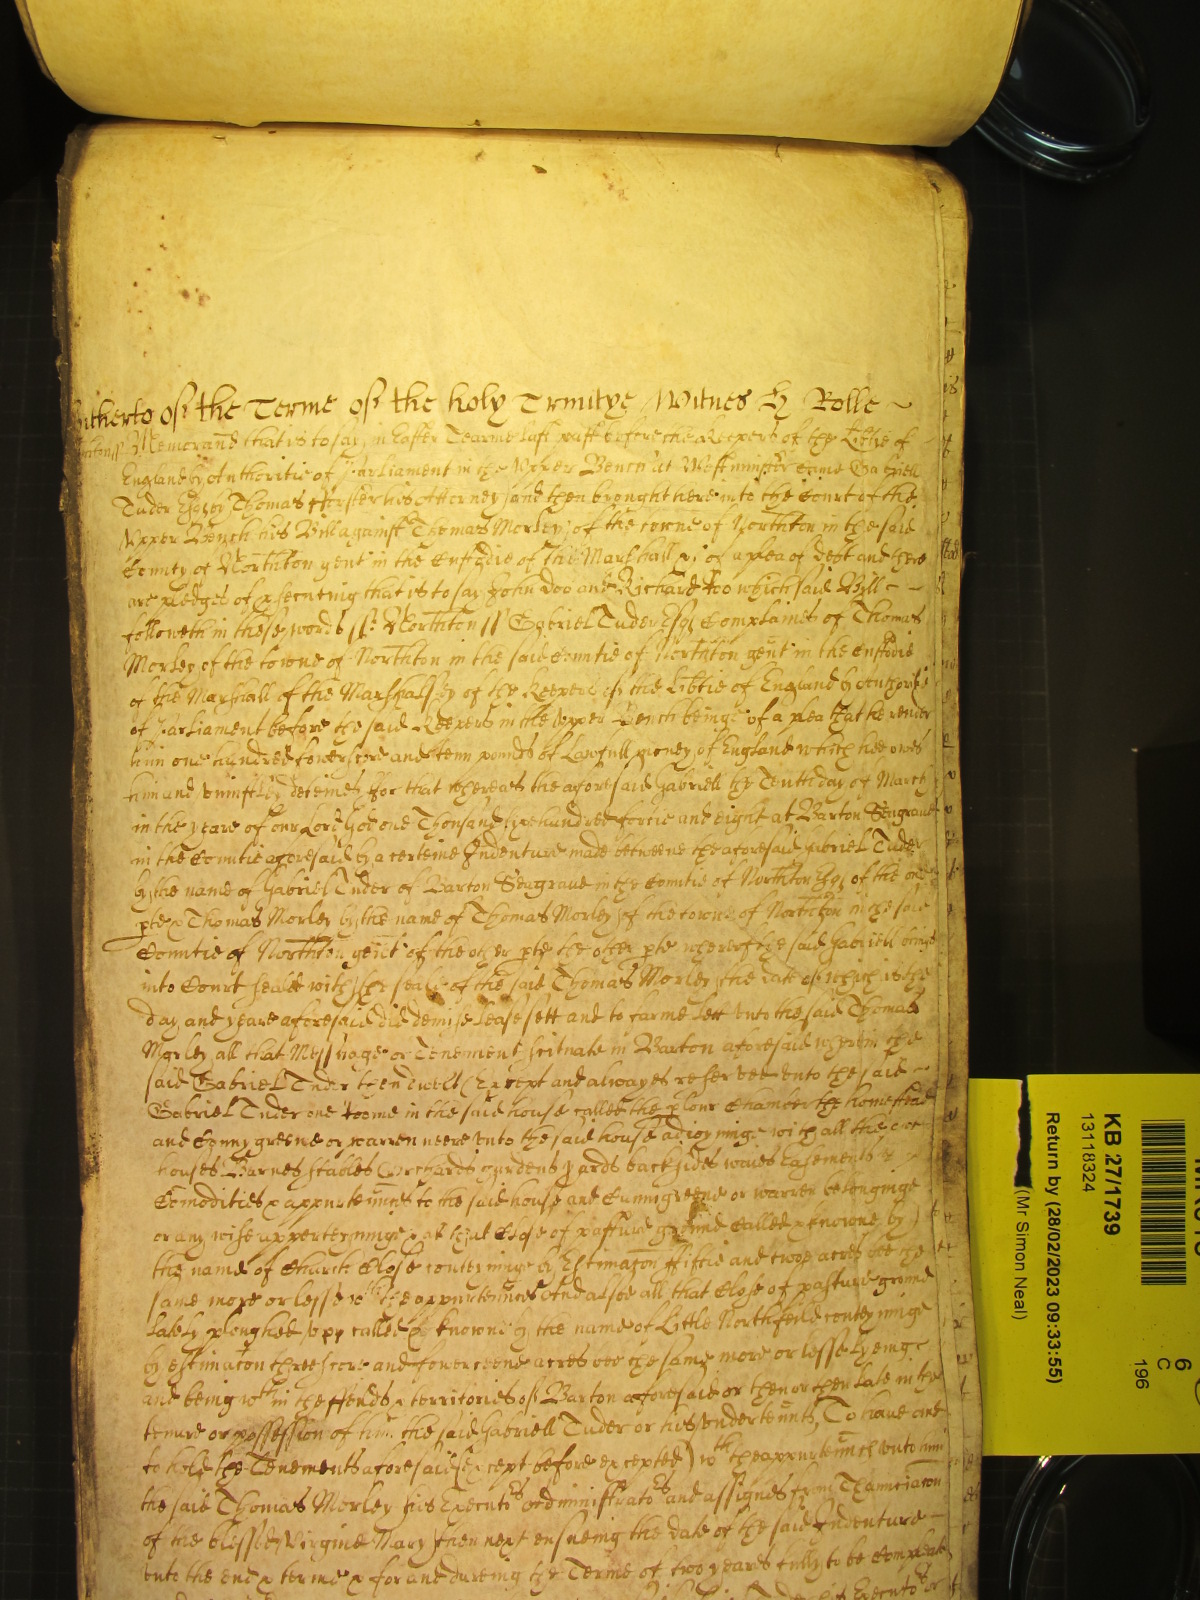 hitherto of the Terme of the holy Trinitye Witnes H Rolle
Memorand that is to say in Easter Tearme last past before the Keepers of the Libtie of
England by Authoritie of Parliament in the Upper Bench at Westminster came Gabriell
Tuder Esqr by Thomas Forster his Attorney and then brought here into the Court of the
Upper Bench his Bill against Thomas Morley of the towne of Northton in the said
County of Northton gent in the Custodie of the Marshall &c of a plea of Debt and there
are pledges of psecuting that is to say John Doo and Richard Roo which said Bill
followeth in these words ss: Northton ss Gabriel Tuder Esqr Complaines of Thomas
Morley of the towne of Northton in the said Countie of Northton gent in the Custodie
of the Marshall of the Marshalsey of the Keepers of the Libtie of England by
of Parliament before the said Keepers in the Upper Bench being of a plea that he render
him one hundred fowerscore and tenn pounds of Lawfull money of England which hee owes
him and uniustly deteines For that whereas the aforesaid Gabriell the Tenth day of March
in the yeare of our Lord God one Thousand sixe hundred fortie and eight at Barton Seagrave
in the Countie aforesaid by a certeine Indenture made betweene the aforesaid Gabriel Tuder
by the name of Gabriel Tuder of Barton Seagrave in the Countie of Northton Esqr of the one
pte & Thomas Morley by the name of Thomas Morley of the towne of Northton in the said
Countie of Northton gent of the other pte the other pte whereof the said Gabriell brings
into Court sealed with the seale of the said Thomas Morley the date of which is the
day and yeare aforesaid did demise lease sett and to farme lett unto the said Thomas
Morley all that Messuage or Tenement scituate in Barton aforesaid wherein the
said Gabriel Tuder then dwelt (Except and alwayes reserved unto the said
Gabriel Tuder one roome in the said house called the plour Chamber the homestead
and Conny greene or warren neere unto the said house adioyning with all the out
houses Barnes stables Orchards gardens yards backsides waies Easements
Comodities & appurtennces to the said house and Cunnigreene or warren belonginge
or any wise apperteyninge & al that Close of pasture ground Called & knowne by
the name of Church Close conteyninge by Estimacon fiftie and twoo acres bee the
same more or lesse wth the appurtennces And alsoe all that Close of pasture ground
lately ploughed upp called & knowne by the name of Little Northfeild conteyninge
by estimacon threescore and fowerteene acres bee the same more or lesse lyeing
and being wthin the ffeilds & territories of Barton aforesaid or then or then late in the
tenure or possession of him the said Gabriell Tuder or his undertennts, To have and
to hold the Tenements aforesaid (except before excepted) wth the appurtennces unto him
the said Thomas Morley his Executrs Administratrs and assignes from Thannciacon
of the blessed Virgine Mary then next ensueing the date of the said Indenture
unto the end & terme & for and dureing the Terme of two yeares fully to be Compleat
KB 27/1739
13118324
Return by (28/02/2023 09:33:55)
(Mr Simon Neal)
6
C
196